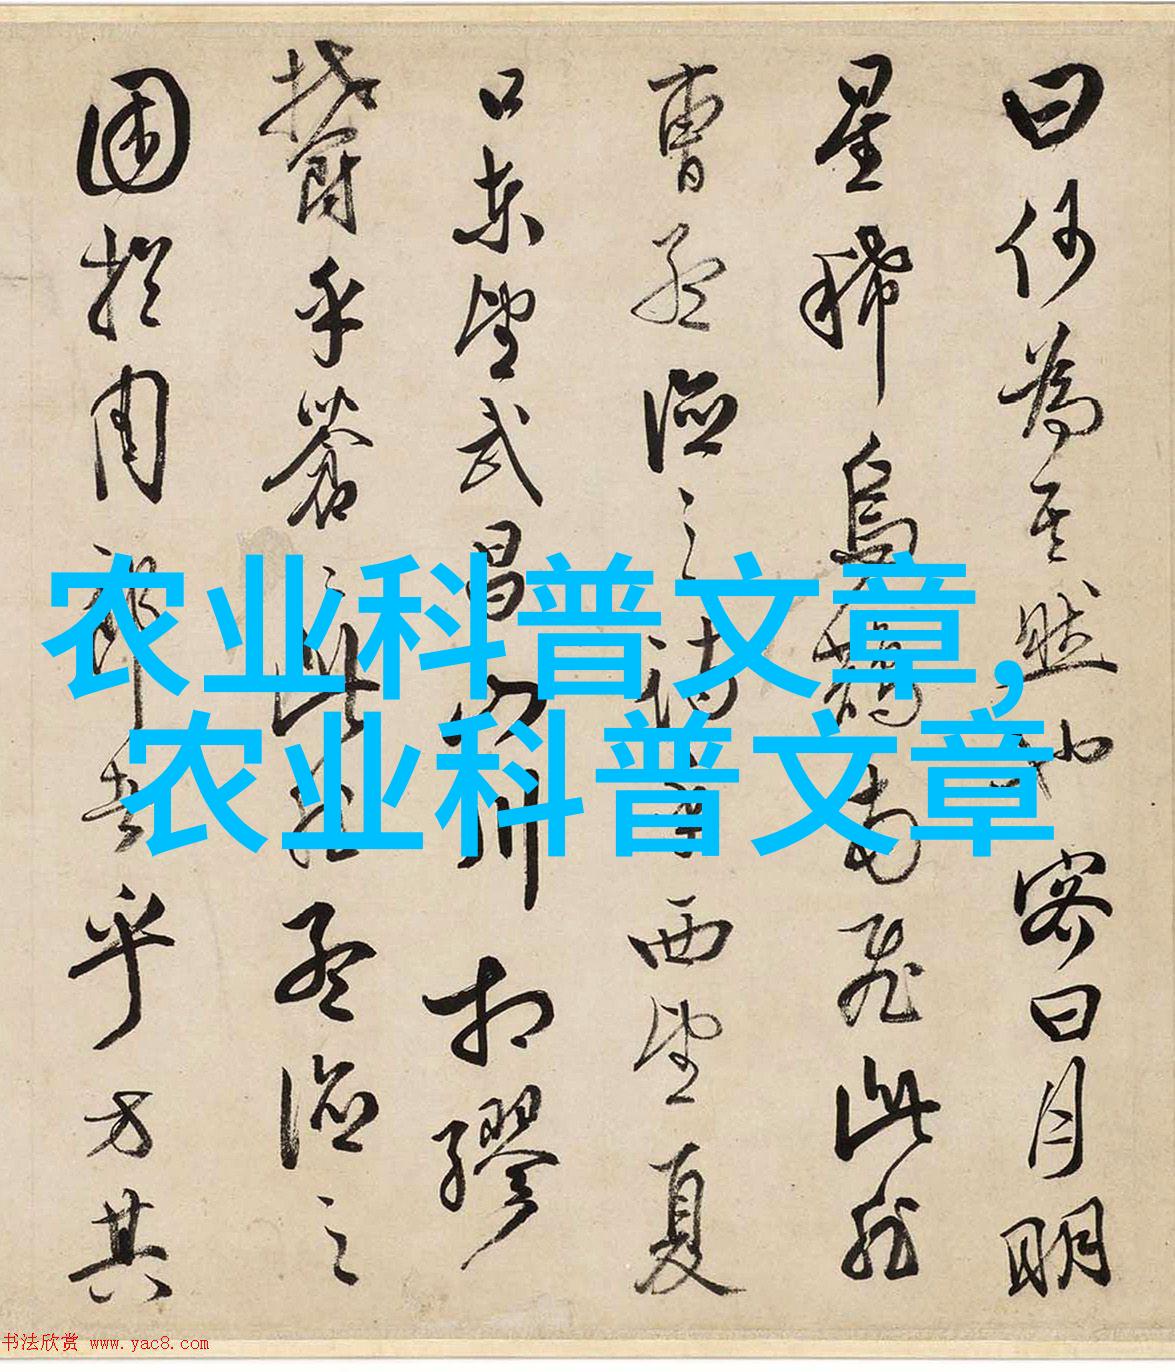 曰何為其然也客曰月明
星稀烏鵲南飛此非
曹孟德之詩乎西望夏
口東望武昌山川相繆
鬱乎蒼〻此非孟德之
困於周郎者乎方其
农业科普文章,
农业科普文章
书法欣赏 www.yac8.com